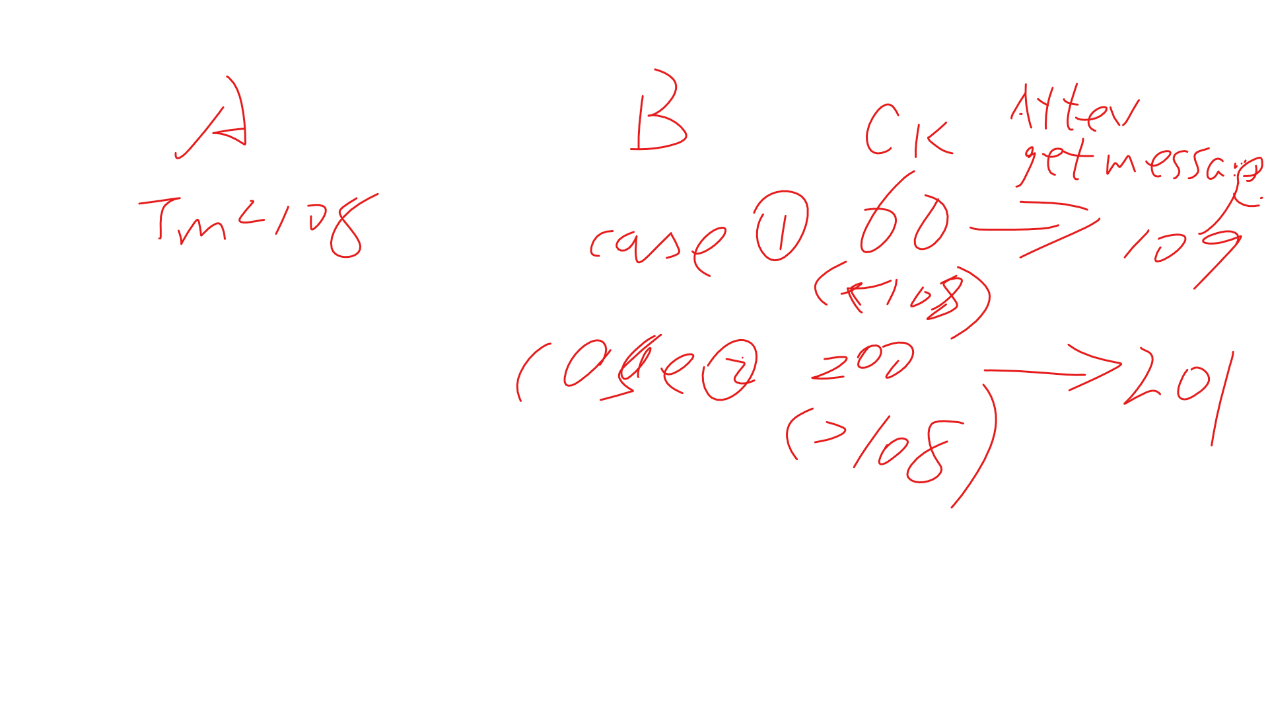 A B CK After
get message
Tm=108 case ① 60 → 109
(<108)
case ② 200 → 201
(>108)